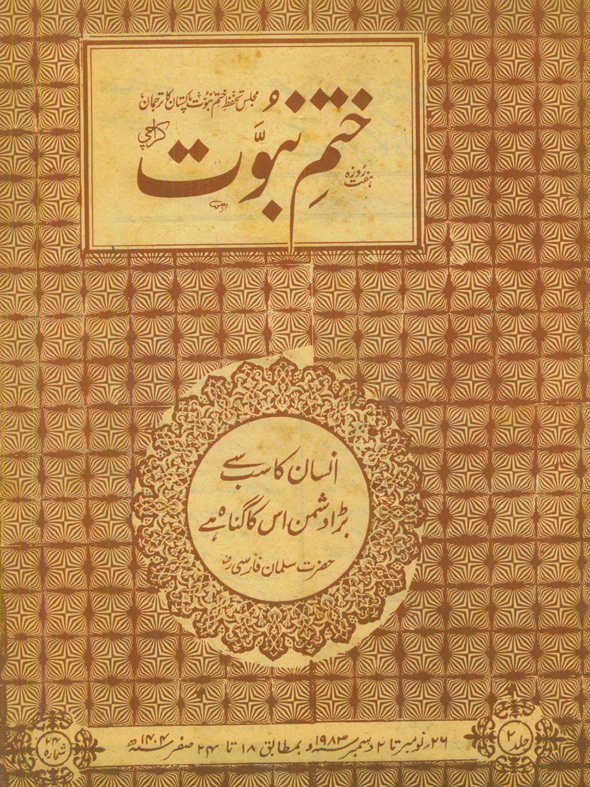 مجلس تحفظ ختم نبوت پاکستان کا ترجمان
ہفت روزہ
ختمِ نبوَّت
کراچی
انسان کا سب سے
بڑا دشمن اس کا گناہ ہے
حضرت سلمان فارسی رضؓ
جلد ۲
۲۶ر نومبر تا ۲ دسمبر ۱۹۸۳ء بمطابق ۱۸ تا ۲۴ صفر ۱۴۰۴ھ
شمارہ ۲۴